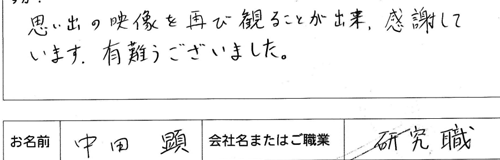 思い出の映像を再び観ることが出来、感謝して
います。有難うございました。
お名前 中田 顕 会社名またはご職業 研究職